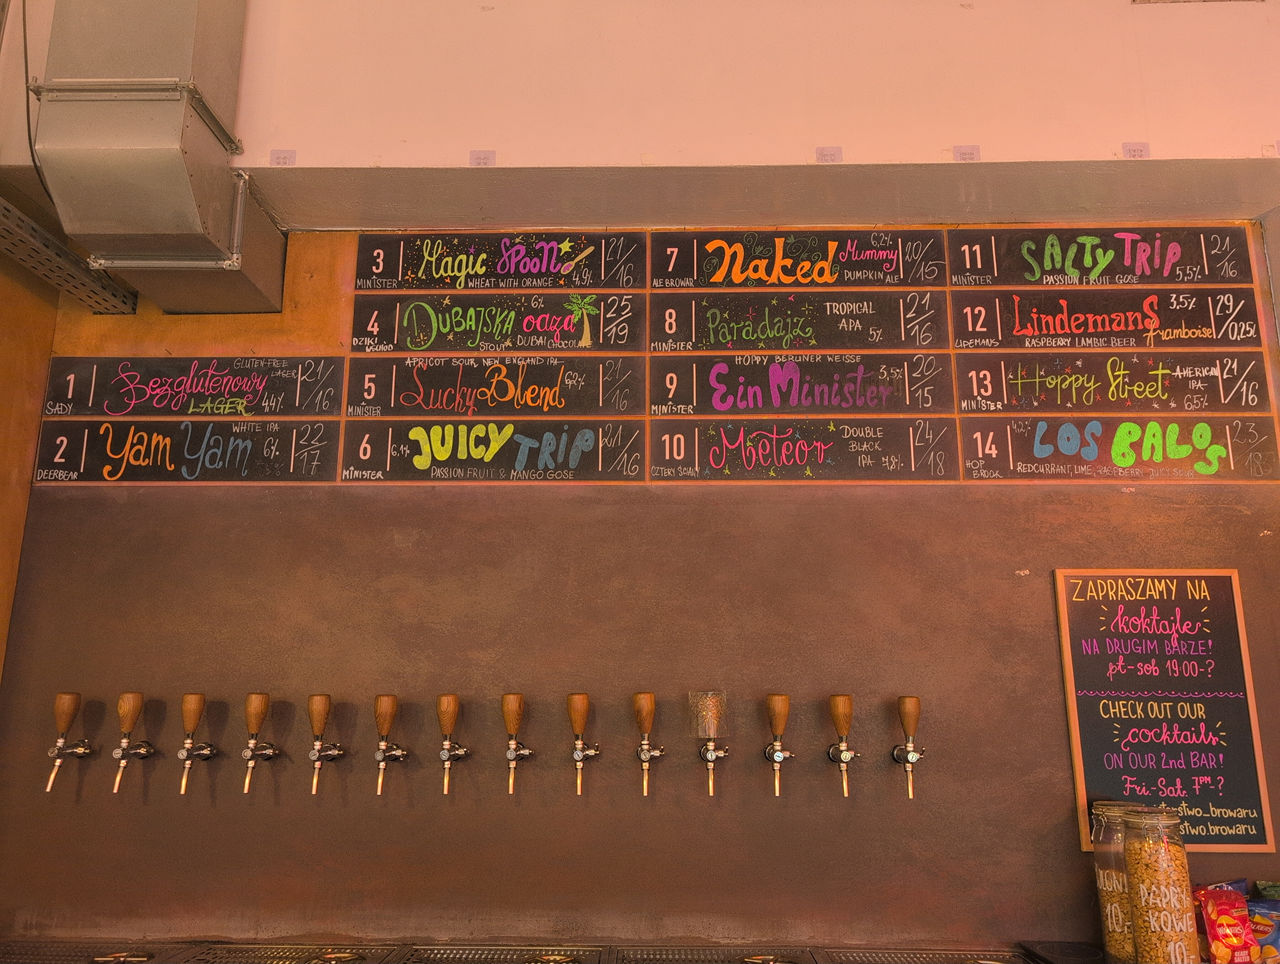 1
SADY
Bezglutenowy
LAGER
GLUTEN-FREE
LAGER
4,4%
21/16
2
DEERBEAR
Yam Yam
WHITE IPA
6%
22/17
3
MINISTER
Magic SPOON
WHEAT WITH ORANGE
4,9%
21/16
4
DZIKI
WSCHÓD
DUBAJSKA oaza
6%
STOUT DUBAI CHOCOLATE
25/19
5
MINISTER
APRICOT SOUR NEW ENGLAND IPA
Lucky Blend
21/16
6
MINISTER
6,1%
JUICY TRIP
PASSION FRUIT & MANGO GOSE
21/16
7
ALE BROWAR
Naked Mummy
6,2%
PUMPKIN ALE
20/15
8
MINISTER
Paradajz
TROPICAL
APA
5%
21/16
9
MINISTER
HOPPY BERLINER WEISSE
Ein Minister
3,5%
20/15
10
CZTERY ŚCIANY
Meteor
DOUBLE
BLACK
IPA 7,8%
24/18
11
MINISTER
SALTY TRIP
PASSION FRUIT GOSE
5,5%
21/16
12
LIDEMANS
Lindemans
3,5%
framboise
RASPBERRY LAMBIC BEER
29/0,25L
13
MINISTER
Hoppy Street
AMERICAN
IPA
6,5%
21/16
14
HOP
BROOK
4,2%
LOS BALOS
REDCURRANT, LIME, RASPBERRY JUICY SOUR
23/18
ZAPRASZAMY NA
koktajle
NA DRUGIM BARZE!
pt-sob 19:00-?
CHECK OUT OUR
cocktails
ON OUR 2nd BAR!
Fri.-Sat. 7PM-?
sterstwo_browaru
stwo.browaru
10,-
PAPRY-
KOWE
10,-